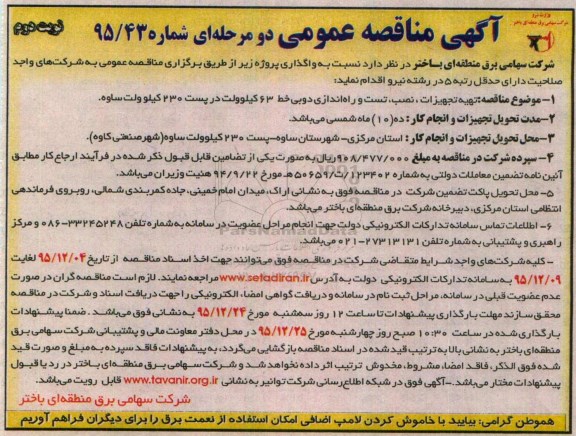 وزارت نیرو
شرکت سهامی برق منطقه ای باختر
نوبت دوم
آگهی مناقصه عمومی دو مرحله‌ای شماره ۹۵/۴۳
شرکت سهامی برق منطقه‌ای باختر در نظر دارد نسبت به واگذاری پروژه زیر از طریق برگزاری مناقصه عمومی به شرکت‌های واجد
صلاحیت دارای حداقل رتبه ۵ در رشته نیرو اقدام نماید:
۱- موضوع مناقصه: تهیه تجهیزات، نصب، تست و راه‌اندازی دوبی خط ۶۳ کیلوولت در پست ۲۳۰ کیلو ولت ساوه.
۲- مدت تحویل تجهیزات و انجام کار: ده (۱۰) ماه شمسی می‌باشد.
۳- محل تحویل تجهیزات و انجام کار: استان مرکزی- شهرستان ساوه- پست ۲۳۰ کیلوولت ساوه (شهرصنعتی کاوه).
۴- سپرده شرکت در مناقصه به مبلغ ۹۰۸/۴۷۷/۰۰۰ ریال به صورت یکی از تضامین قابل قبول ذکر شده در فرآیند ارجاع کار مطابق
آئین نامه تضمین معاملات دولتی به شماره ۱۲۳۴۰۲/ت/۵۰۶۵۹هـ مورخ ۹۴/۹/۲۲ هئیت وزیران می‌باشد.
۵- محل تحویل پاکت تضمین شرکت در مناقصه فوق به نشانی اراک، میدان امام خمینی، جاده کمربندی شمالی، روبروی فرماندهی
انتظامی استان مرکزی، دبیرخانه شرکت برق منطقه‌ای باختر می‌باشد.
۶- اطلاعات تماس سامانه تدارکات الکترونیکی دولت جهت انجام مراحل عضویت در سامانه به شماره تلفن ۳۳۲۴۵۲۴۸-۰۸۶ و مرکز
راهبری و پشتیبانی به شماره تلفن ۲۷۳۱۳۱۳۱-۰۲۱ می‌باشد.
- کلیه شرکت‌های واجد شرایط متقاضی شرکت در مناقصه فوق می‌توانند جهت اخذ اسناد مناقصه از تاریخ ۹۵/۱۲/۰۴ لغایت
۹۵/۱۲/۰۹ به سامانه تدارکات الکترونیکی دولت به آدرس www.setadiran.ir مراجعه نمایند. لازم است مناقصه گران در صورت
عدم عضویت قبلی در سامانه، مراحل ثبت نام در سامانه و دریافت گواهی امضاء الکترونیکی را جهت دریافت اسناد و شرکت در مناقصه
محقق سازند مهلت بارگذاری پیشنهادات تا ساعت ۱۲ روز سه‌شنبه مورخ ۹۵/۱۲/۲۴ به نشانی فوق می‌باشد. ضمنا پیشنهادات
بارگذاری شده در ساعت ۱۰:۳۰ صبح روز چهارشنبه مورخ ۹۵/۱۲/۲۵ در محل دفتر معاونت مالی و پشتیبانی شرکت سهامی برق
منطقه‌ای باختر به نشانی بالا به ترتیب قید شده در اسناد مناقصه بازگشایی می‌گردد، به پیشنهادات فاقد سپرده به مبلغ و صورت قید
شده فوق الذکر، فاقد امضا، مشروط، مخدوش ترتیب اثر داده نخواهد شد و شرکت سهامی برق منطقه‌ای باختر در رد یا قبول
پیشنهادات مختار می‌باشد.- آگهی فوق در شبکه اطلاع رسانی شرکت توانیر به نشانی www.tavanir.org.ir قابل رویت می‌باشد.
شرکت سهامی برق منطقه‌ای باختر
هموطن گرامی: بیایید با خاموش کردن لامپ اضافی امکان استفاده از نعمت برق را برای دیگران فراهم آوریم